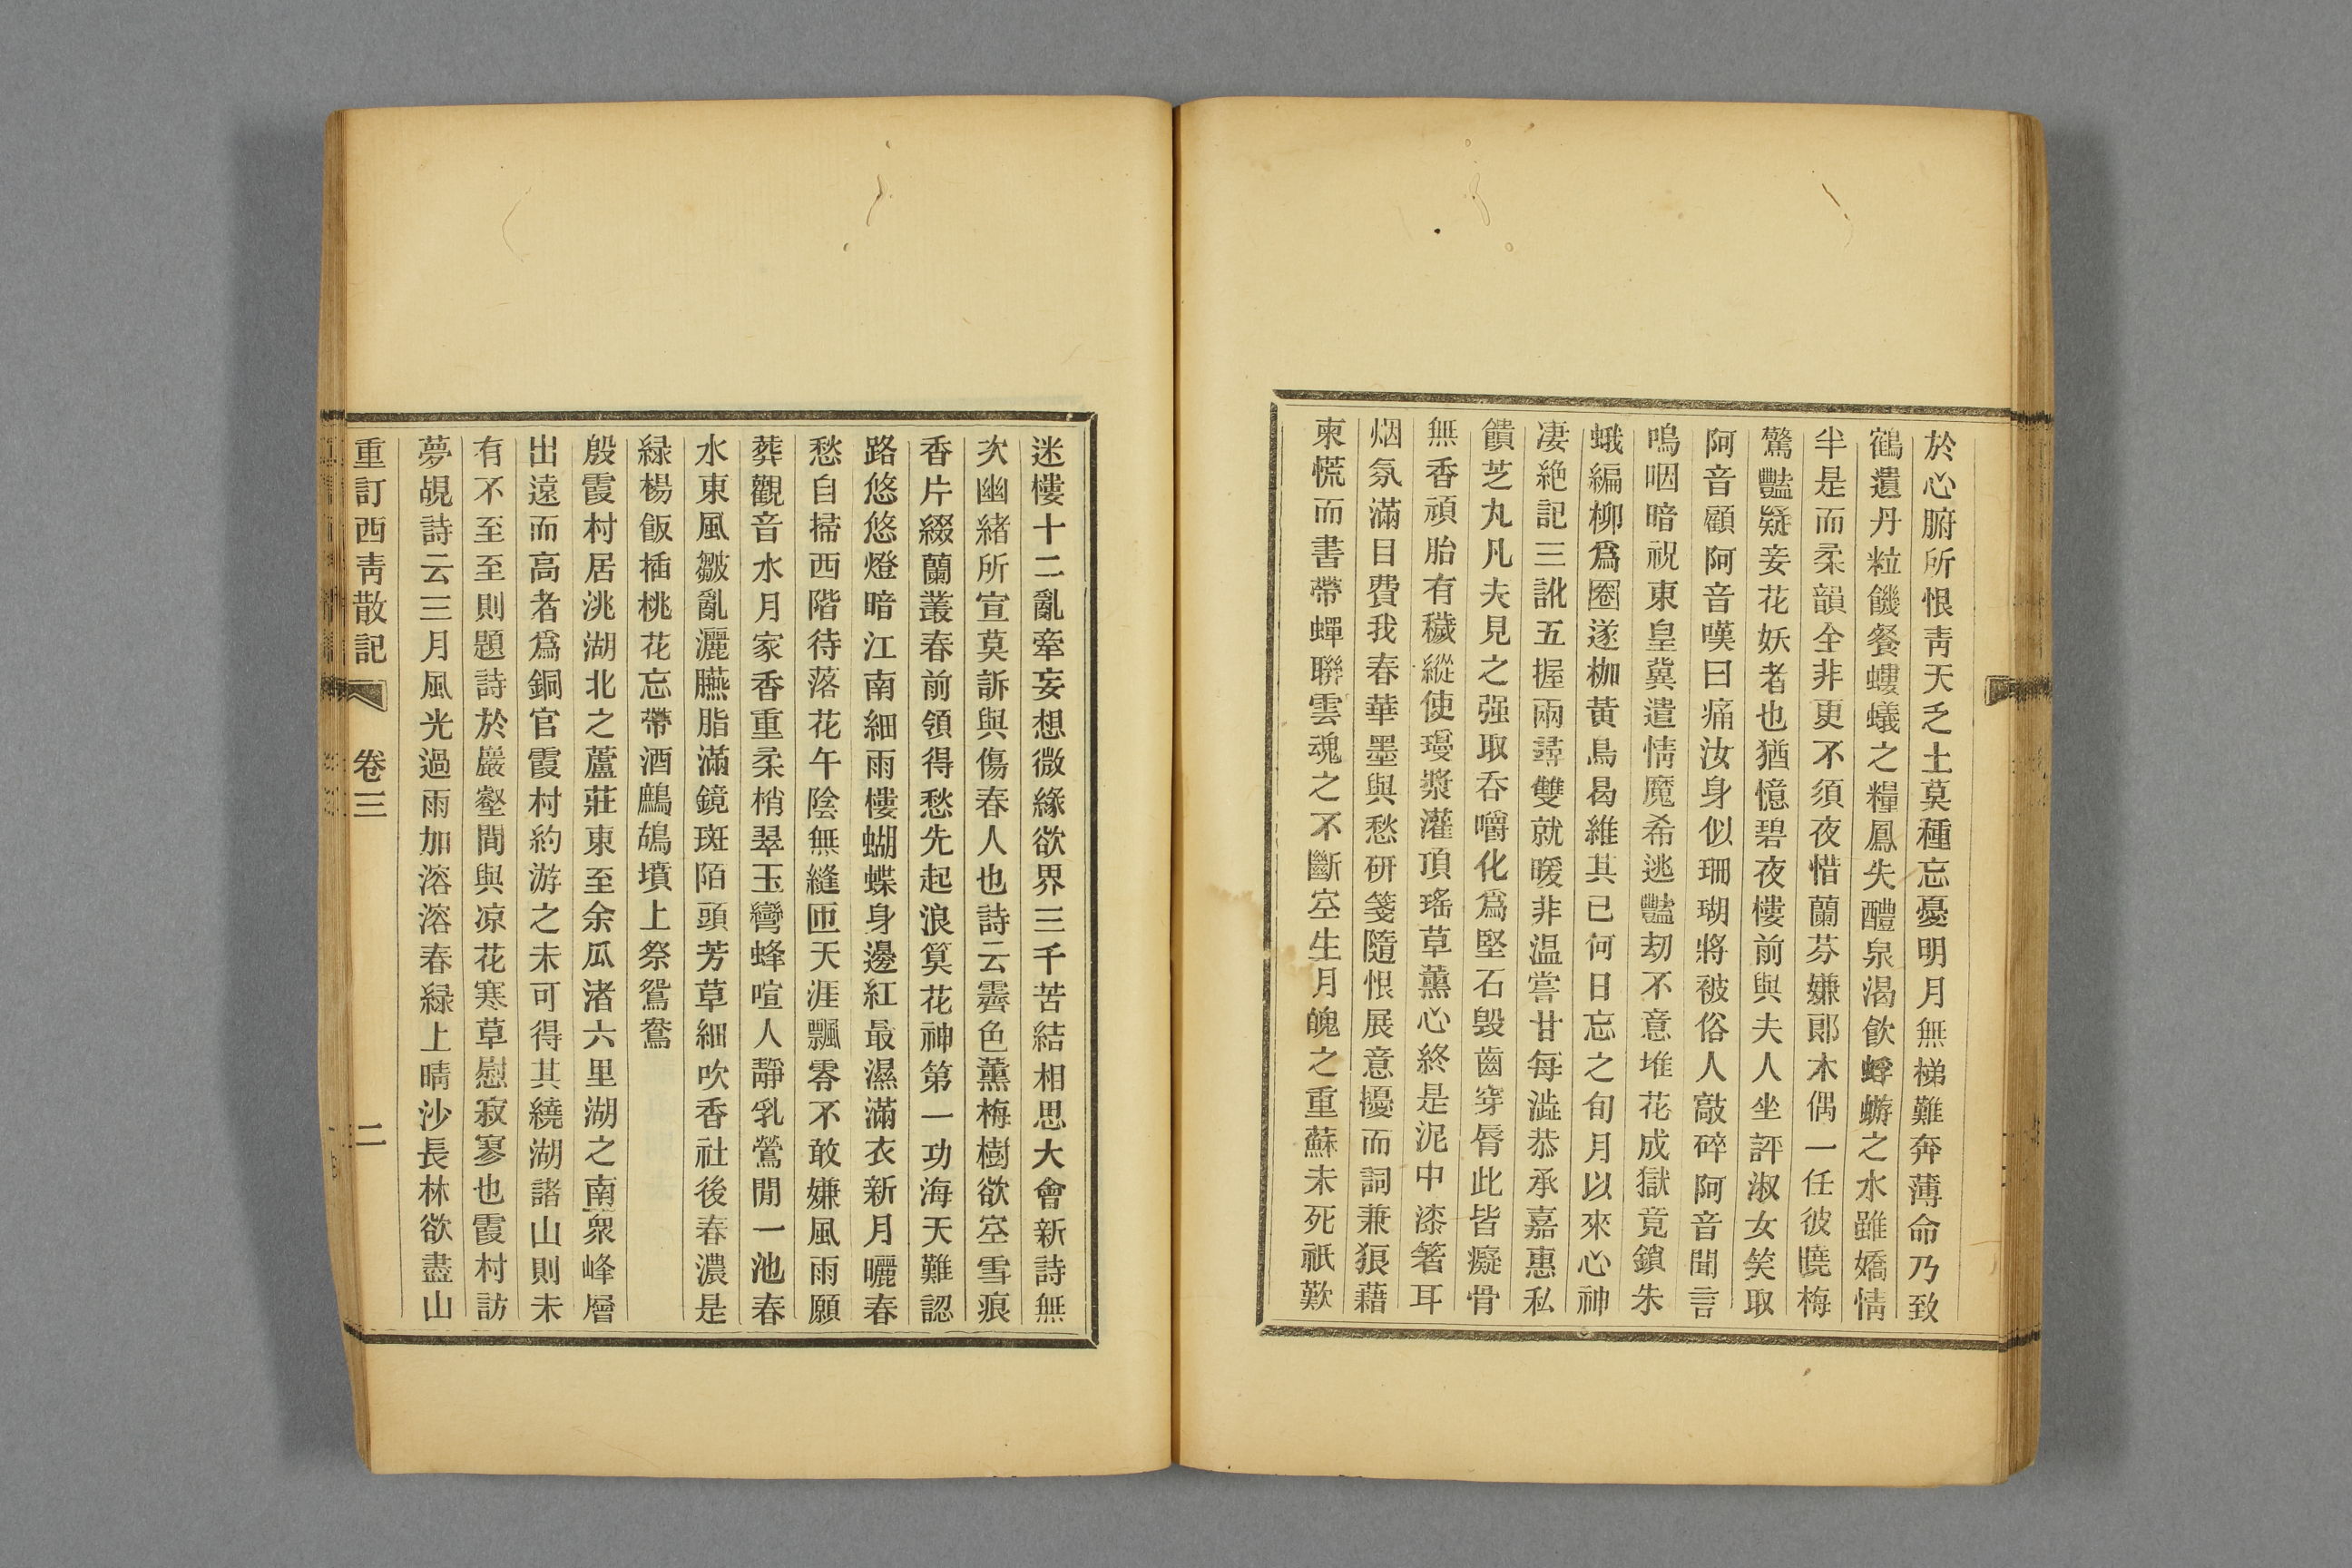 於心腑所恨靑天乏土莫種忘憂明月無梯難奔薄命乃致
鶴遺丹粒饑餐螻蟻之糧鳳失醴泉渴飮蜉蝣之水雖嬌情
半是而柔韻全非更不須夜惜蘭芬嫌郞木偶一任彼曉梅
驚豔疑妾花妖者也猶憶碧夜樓前與夫人坐評淑女笑取
阿音顧阿音嘆曰痛汝身似珊瑚將被俗人敲碎阿音聞言
嗚咽暗祝東皇冀遣情魔希逃豔刧不意堆花成獄竟鎖朱
蛾編柳爲圈遂枷黃鳥曷維其已何日忘之旬月以來心神
凄絶記三訛五握兩尋雙就暖非温嘗甘每澁恭承嘉惠私
饋芝丸凡夫見之强取呑嚼化爲堅石毁齒穿脣此皆癡骨
無香頑胎有穢縱使瓊漿灌頂瑤草薰心終是泥中漆箸耳
烟氛滿目費我春華墨與愁硏箋隨恨展意擾而詞兼狼藉
柬慌而書帶蟬聯雲魂之不斷空生月魄之重蘇未死祇歎
迷樓十二亂牽妄想微緣欲界三千苦結相思大會新詩無
次幽緖所宣莫訴與傷春人也詩云霽色薰梅樹欲空雪痕
香片綴蘭叢春前領得愁先起浪筭花神第一功海天難認
路悠悠燈暗江南細雨樓蝴蝶身邊紅最濕滿衣新月曬春
愁自掃西階待落花午陰無縫匝天涯飄零不敢嫌風雨願
葬觀音水月家香重柔梢翠玉彎蜂喧人靜乳鶯閒一池春
水東風皺亂灑臙脂滿鏡斑陌頭芳草細吹香社後春濃是
緑楊飯插桃花忘帶酒鷓鴣墳上祭鴛鴦
殷霞村居洮湖北之蘆莊東至余瓜渚六里湖之南衆峰層
出遠而高者爲銅官霞村約游之未可得其繞湖諸山則未
有不至至則題詩於巖壑間與凉花寒草慰寂寥也霞村訪
夢覘詩云三月風光過雨加溶溶春緑上晴沙長林欲盡山
重訂西靑散記 卷三 二